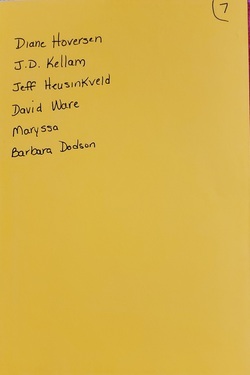 7
Diane Hoversen
J.D. Kellam
Jeff Heusinkveld
David Ware
Maryssa
Barbara Dodson